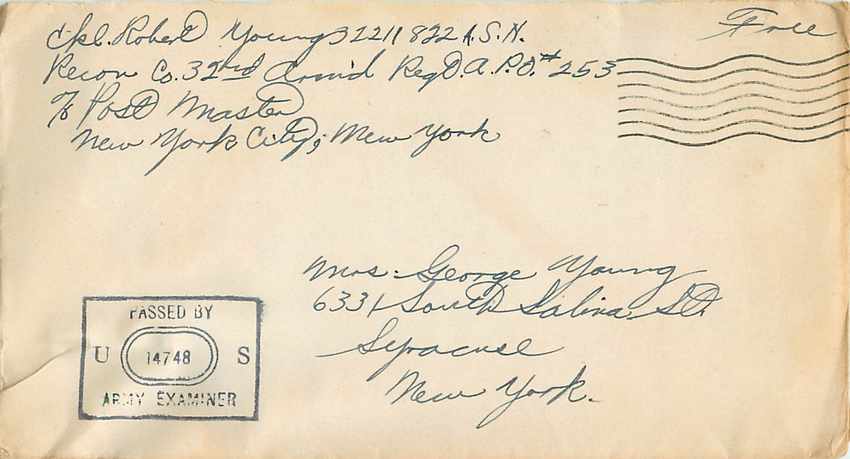 Cpl. Robert Young 32211822 A.S.N.
Free
Recon Co. 32nd Arm'd Regt. A.P.O. # 253
% Post Master
New York City, New York
Mrs. George Young
6331 South Salina St.
Syracuse
New York.
PASSED BY
U 14748 S
ARMY EXAMINER